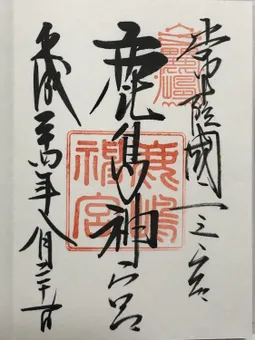 常陸國一之宮
鹿島神宮
平成二十四年八月二十一日
鹿嶋神宮